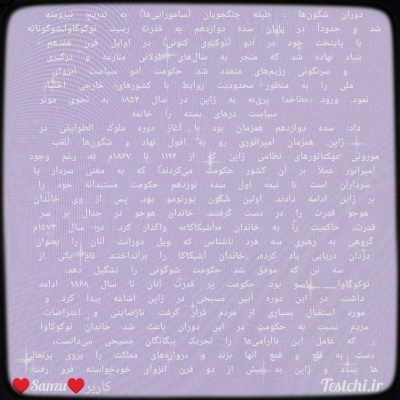 دوران شگون‌ها طبقه جنگجویان (سامورایی‌ها) به تدریج نیرومند
شد و حدوداً در پایان سده دوازدهم به قدرت رسید. توکوگاوا‌شوگوناته
با پایتخت خود در ادو (توکیوی کنونی) در اوایل قرن هفدهم
بنیاد نهاده شد که منجر به سال‌های طولانی منازعه و درگیری
و سرنگونی رژیم‌های متعدد شد. حکومت ادو سیاست انزوای
ملی را به منظور محدودیت روابط با کشورهای خارجی اختیار
نمود. ورود «ناخدا پری» به ژاپن در سال ۱۸۵۳ به نحوی موثر
سیاست درهای بسته را خاتمه
داد. سده دوازدهم همزمان بود با آغاز دوره ملوک الطوایفی در
ژاپن. همزمان امپراتوری رو به افول نهاد و شگون‌ها (لقب
موروثی دیکتاتورهای نظامی ژاپن که از ۱۱۹۲ تا ۱۸۶۷م به رغم وجود
امپراتور عملاً بر آن کشور حکومت می‌کردند) که به معنی سردار یا
سرداران است تا نیمه اول سده نوزدهم حکومت مستبدانه خود را
بر ژاپن ادامه دادند. اولین شگون یوریتومو بود. پس از وی خاندان
هوجو قدرت را در دست گرفتند. خاندان هوجو در جدال بر سر
قدرت، حاکمیت را به خاندان «آشیکاگا» واگذار کرد. در سال ۱۵۷۳م
گروهی به رهبری سه فرد ناشناس که ویل دورانت آنان را بعنوان
دزدان دریایی یاد کرده، خاندان آشیکاگا را برانداختند. نام یکی از
سه تن که موفق شد حکومت شوگونی را تشکیل دهد،
توکوگاوا بود. حکومت پر قدرت آنان تا سال ۱۸۶۸ ادامه
داشت. در این دوره آیین مسیحی در ژاپن اشاعه پیدا کرد و
مورد استقبال بسیاری از مردم قرار گرفت. نارضایتی و اعتراضات
مردم نسبت به حکومت در این دوران باعث شد خاندان توکوگاوا
که عامل این ناآرامی‌ها را تحریک بیگانگان مسیحی می‌دانست،
دست به قلع و قمع آنها بزند و دروازه‌های مملکت را بروی پرتغالی
ها ببندد و ژاپن به بیش از دو قرن انزوای خودخواسته فرو رفت.
کاربر ♥️Sanzu♥️
Testchi.ir